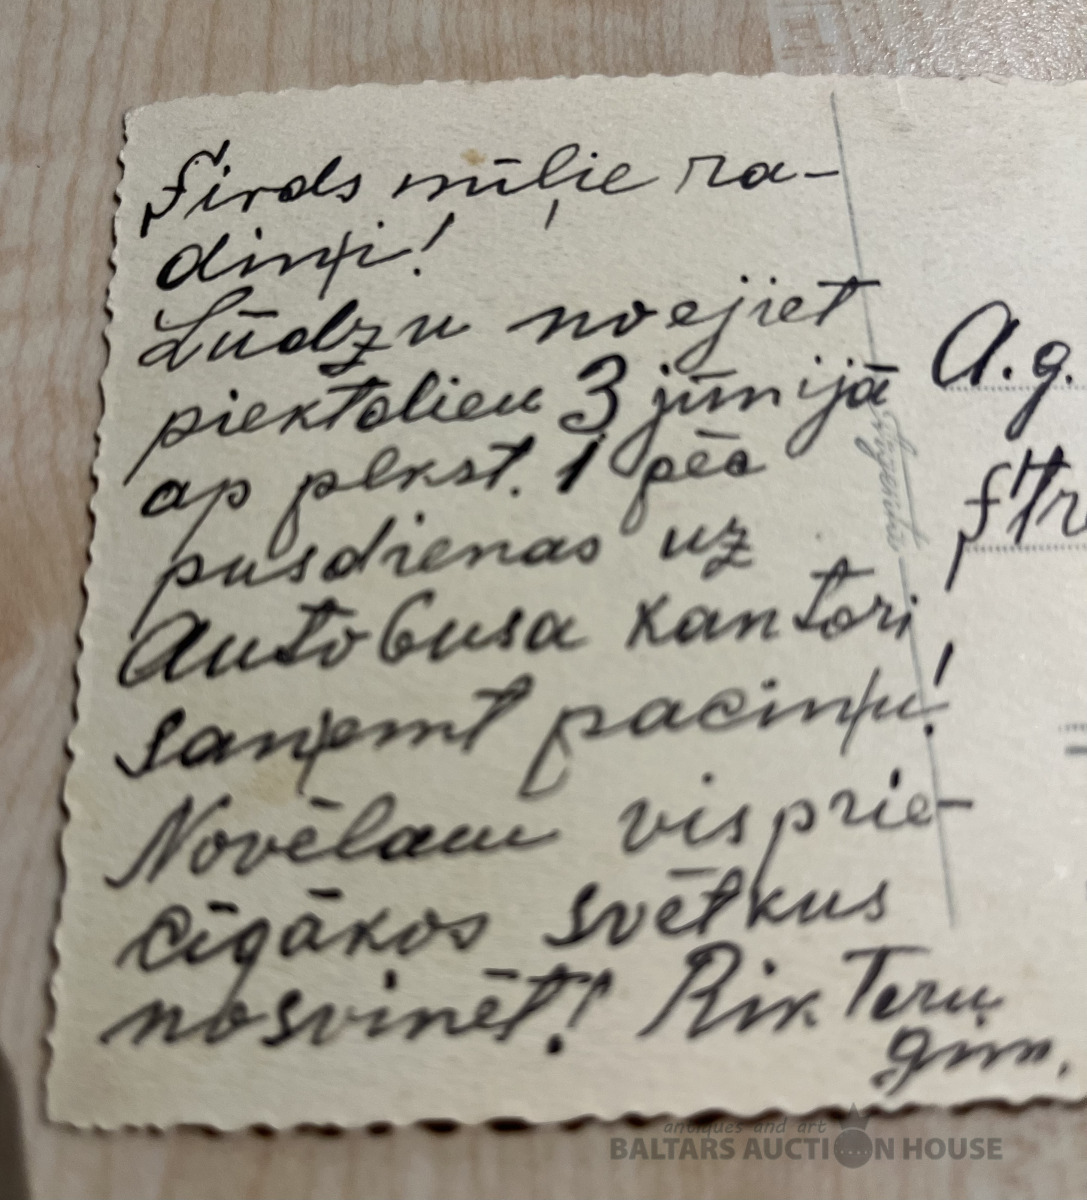 Sirds mīļie ra-
diņi!
Lūdzu noejiet
piektdien 3 jūnijā
ap plkst. 1 pēc
pusdienas uz
Autobusa kantori
saņemt paciņu!
Novēlam visprie-
cīgākos svētkus
nosvinēt! Rikteru
ģim.
A.g.
Str
antiques and art
BALTARS AUCTION HOUSE